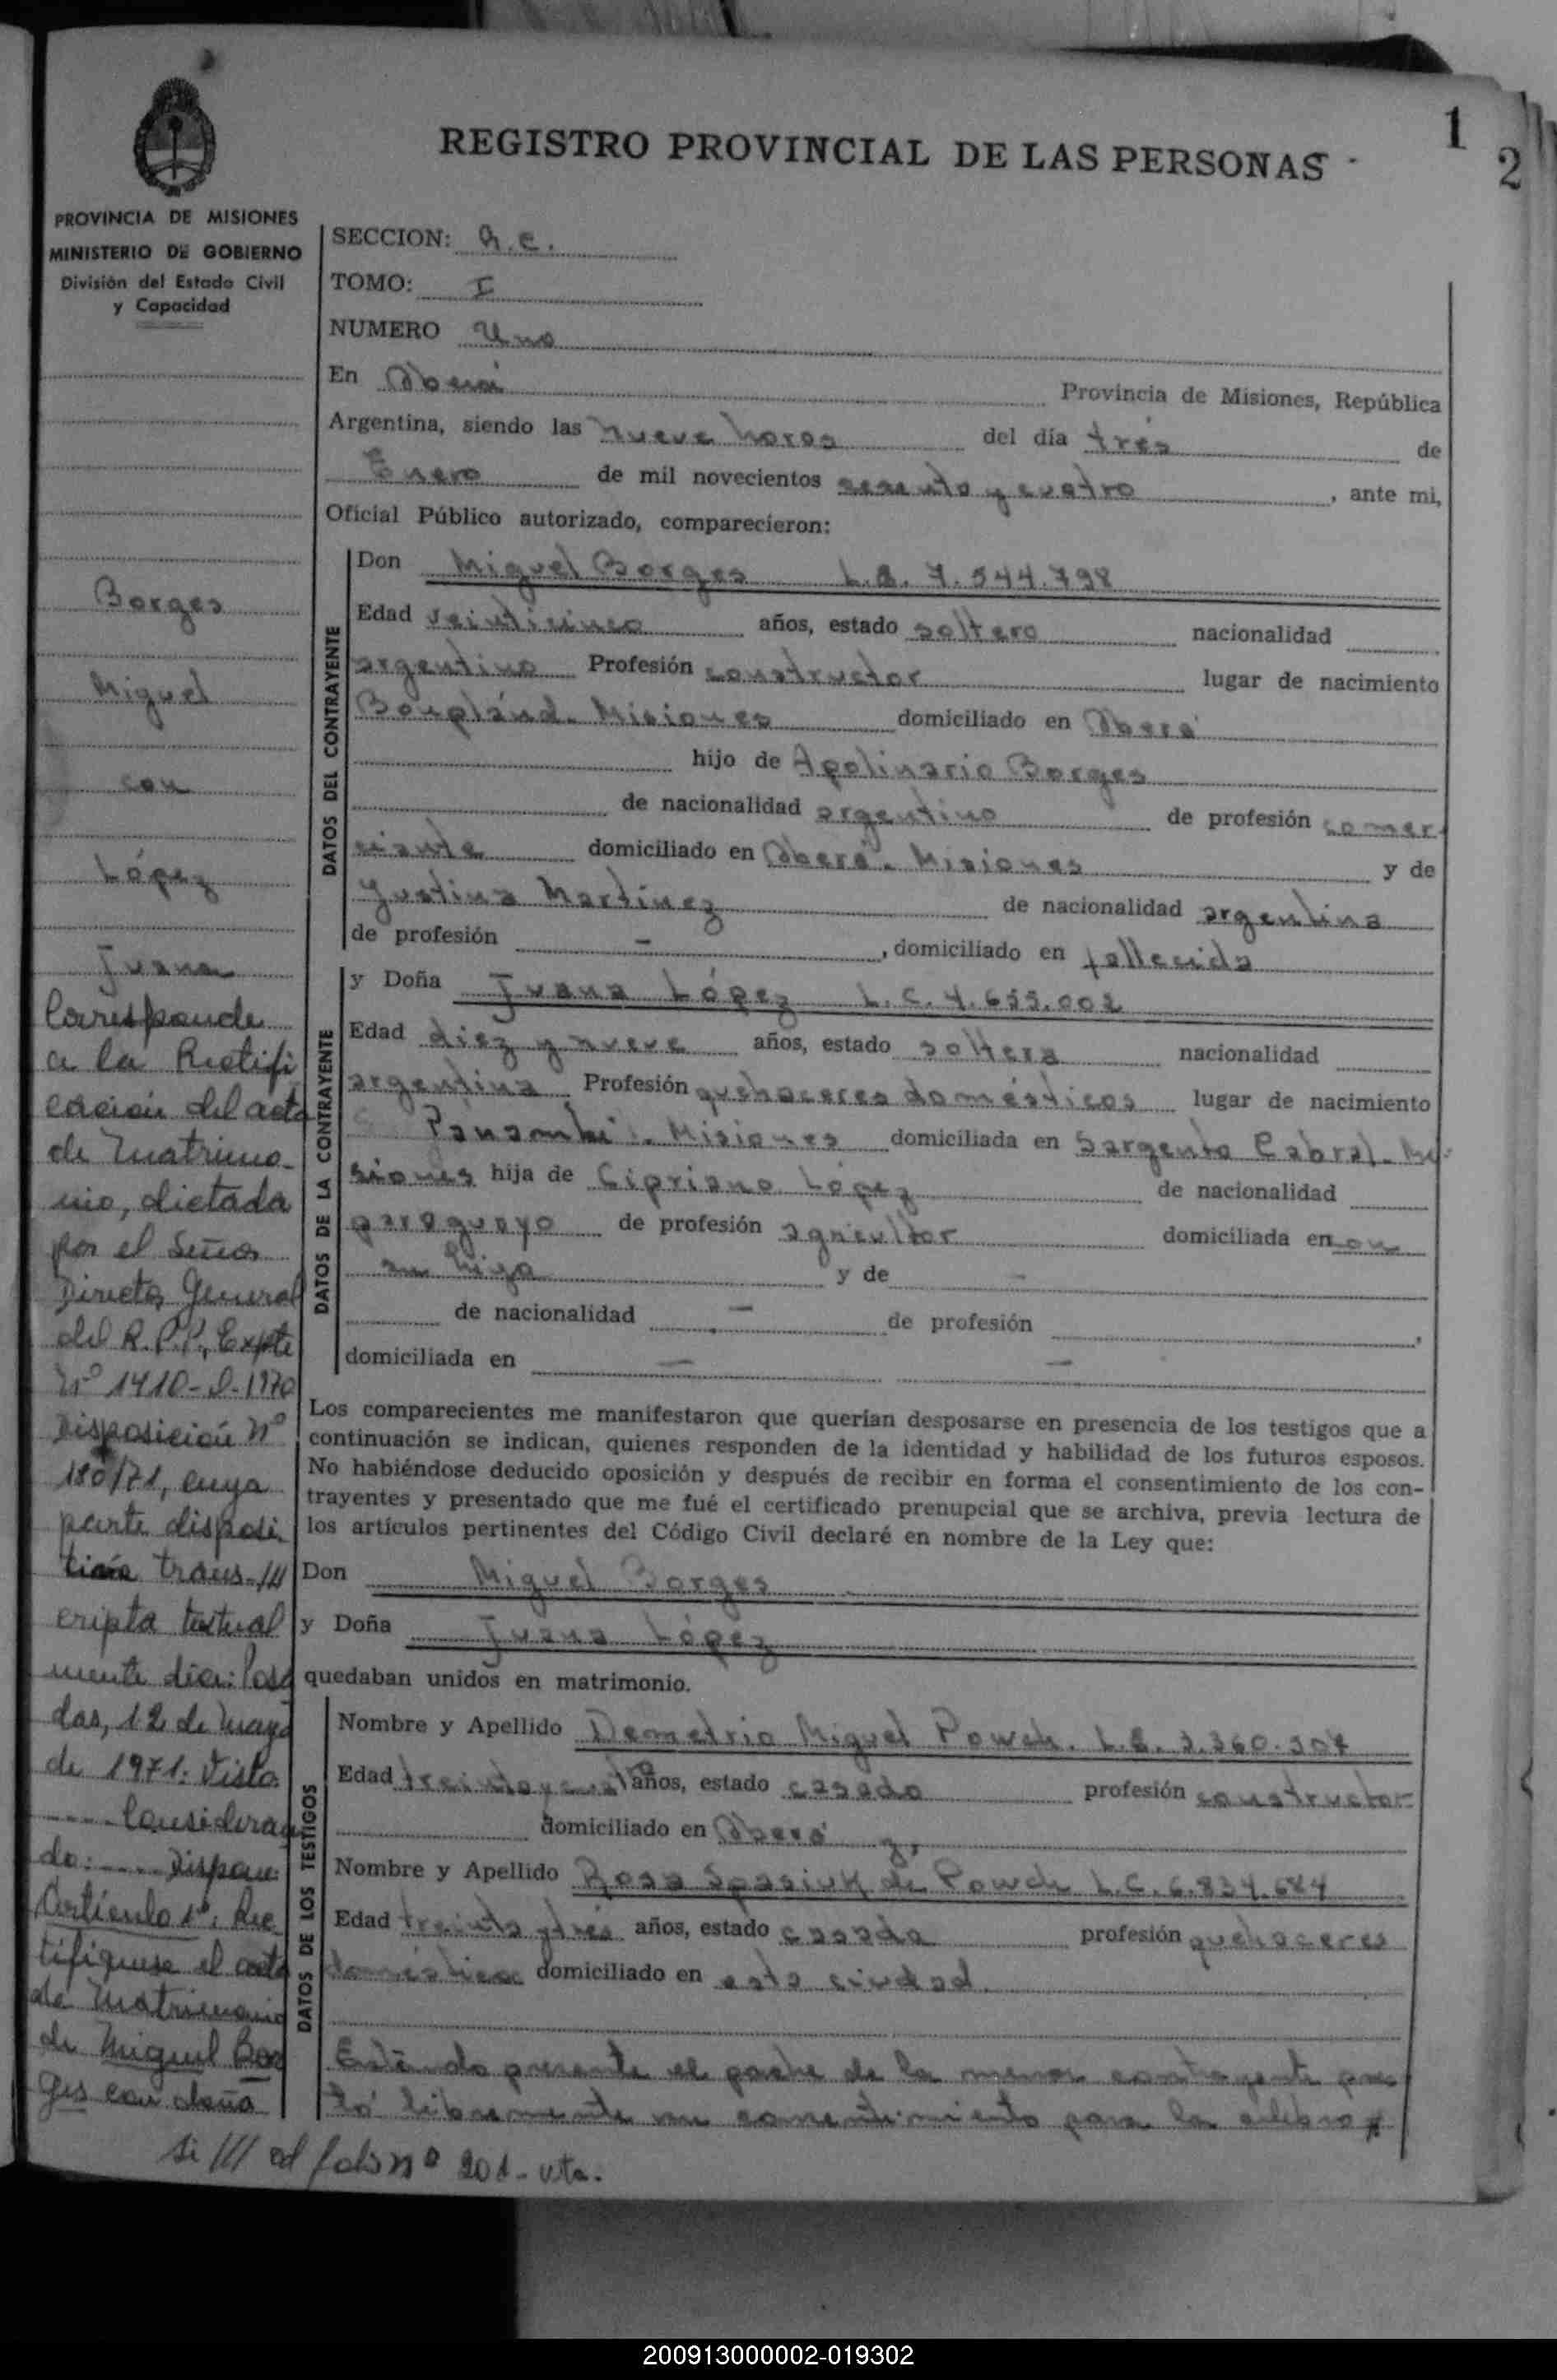 1
2
REGISTRO PROVINCIAL DE LAS PERSONAS
PROVINCIA DE MISIONES
MINISTERIO DE GOBIERNO
División del Estado Civil
y Capacidad
SECCION: A.C.
TOMO: I
NUMERO Uno
En Oberá Provincia de Misiones, República
Argentina, siendo las nueve horas del día trés de
Enero de mil novecientos sesenta y cuatro, ante mi,
Oficial Público autorizado, comparecieron:
DATOS DEL CONTRAYENTE
Don Miguel Borges L.E. 7.544.798
Edad veinticinco años, estado soltero nacionalidad
argentino Profesión constructor lugar de nacimiento
Bonpland. Misiones domiciliado en Oberá
hijo de Apolinario Borges
de nacionalidad argentino de profesión comer-
ciante domiciliado en Oberá. Misiones y de
Justina Martinez de nacionalidad argentina
de profesión -, domiciliado en fallecida
DATOS DE LA CONTRAYENTE
y Doña Juana López L.C. 4.655.002
Edad diez y nueve años, estado soltera nacionalidad
argentina Profesión quehaceres domésticos lugar de nacimiento
Panambi. Misiones domiciliada en Sargento Cabral. Mi-
siones hija de Cipriano López de nacionalidad
paraguayo de profesión agricultor domiciliada en con
su hija y de -
de nacionalidad - de profesión ,
domiciliada en - -
Los comparecientes me manifestaron que querían desposarse en presencia de los testigos que a
continuación se indican, quienes responden de la identidad y habilidad de los futuros esposos.
No habiéndose deducido oposición y después de recibir en forma el consentimiento de los con-
trayentes y presentado que me fué el certificado prenupcial que se archiva, previa lectura de
los artículos pertinentes del Código Civil declaré en nombre de la Ley que:
Don Miguel Borges
y Doña Juana López
quedaban unidos en matrimonio.
DATOS DE LOS TESTIGOS
Nombre y Apellido Demetrio Miguel Powch. L.E. 3.360.507
Edad treinta y cuatro años, estado casado profesión constructor
domiciliado en Oberá y,
Nombre y Apellido Rosa Spasiuk de Powch L.C. 6.834.684
Edad treinta y trés años, estado casada profesión quehaceres
domésticos domiciliado en esta ciudad.
Estando presente el padre de la menor contrayente pres
tó libremente su consentimiento para la
Borges
Miguel
con
López
Juana
Corresponde
a la Rectifi
cación del acta
de Matrimo-
nio, dictada
por el Señor
Director General
del R.P.P., Expte
Nº 1410-D-1970
Disposición Nº
180/71, cuya
parte disposi-
tiva trans-///
cripta textual
mente dice: Posa
das, 12 de Mayo
de 1971. Visto
.... Consideran
do: .... Dispone:
Artículo 1º: Rec
tifiquese el acta
de Matrimonio
de Miguel Bor
ges con doña
si /// al folio nº 201- vta.
200913000002-019302